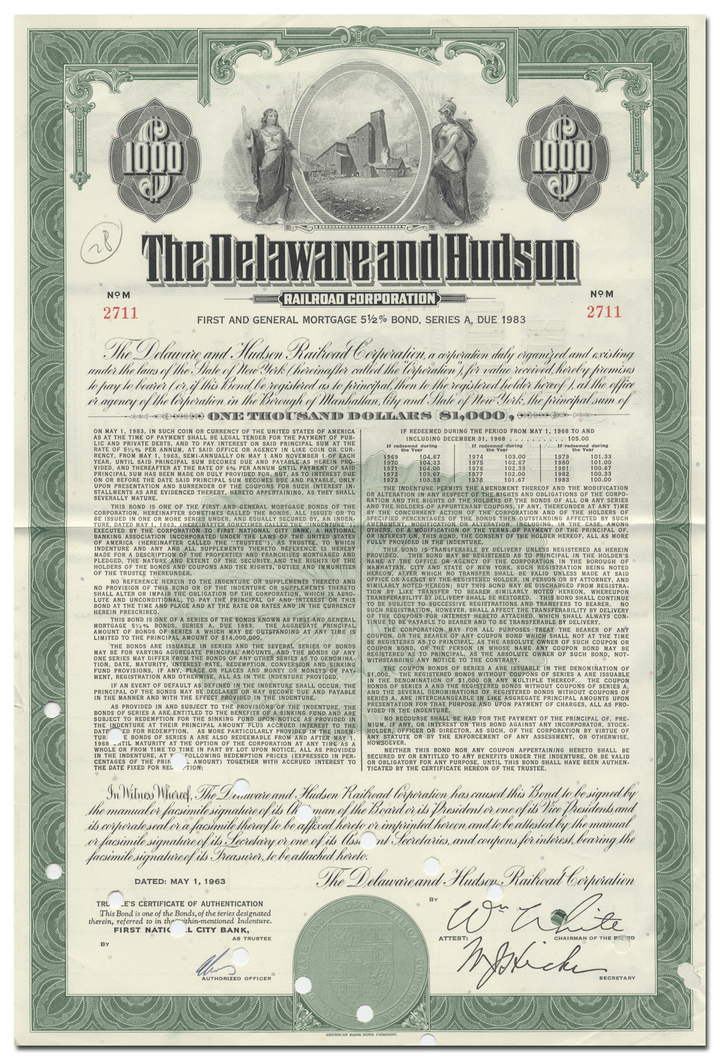 1000
1000
28
The Delaware and Hudson
RAILROAD CORPORATION
NO M
2711
NO M
2711
FIRST AND GENERAL MORTGAGE 5½% BOND, SERIES A, DUE 1983
The Delaware and Hudson Railroad Corporation, a corporation duly organized and existing
under the laws of the State of New York (hereinafter called the Corporation), for value received, hereby promises
to pay to bearer (or, if this Bond be registered as to principal, then to the registered holder hereof), at the office
or agency of the Corporation in the Borough of Manhattan, City and State of New York, the principal sum of
ONE THOUSAND DOLLARS ($1,000),
ON MAY 1, 1983, IN SUCH COIN OR CURRENCY OF THE UNITED STATES OF AMERICA
AS AT THE TIME OF PAYMENT SHALL BE LEGAL TENDER FOR THE PAYMENT OF PUB-
LIC AND PRIVATE DEBTS, AND TO PAY INTEREST ON SAID PRINCIPAL SUM AT THE
RATE OF 5½% PER ANNUM, AT SAID OFFICE OR AGENCY IN LIKE COIN OR CUR-
RENCY, FROM MAY 1, 1963, SEMI-ANNUALLY ON MAY 1 AND NOVEMBER 1 OF EACH
YEAR, UNTIL SAID PRINCIPAL SUM BECOMES DUE AND PAYABLE AS HEREIN PRO-
VIDED, AND THEREAFTER AT THE RATE OF 6% PER ANNUM UNTIL PAYMENT OF SAID
PRINCIPAL SUM HAS BEEN MADE OR DULY PROVIDED FOR, BUT, AS TO INTEREST DUE
ON OR BEFORE THE DATE SAID PRINCIPAL SUM BECOMES DUE AND PAYABLE, ONLY
UPON PRESENTATION AND SURRENDER OF THE COUPONS FOR SUCH INTEREST IN-
STALLMENTS AS ARE EVIDENCED THEREBY, HERETO APPERTAINING, AS THEY SHALL
SEVERALLY MATURE.
THIS BOND IS ONE OF THE FIRST AND GENERAL MORTGAGE BONDS OF THE
CORPORATION, HEREINAFTER SOMETIMES CALLED THE BONDS, ALL ISSUED OR TO
BE ISSUED IN ONE OR MORE SERIES UNDER, AND EQUALLY SECURED BY, AN INDEN-
TURE, DATED MAY 1, 1963, (HEREINAFTER SOMETIMES CALLED THE "INDENTURE"),
FROM THE CORPORATION TO FIRST NATIONAL CITY BANK, A NATIONAL
BANKING ASSOCIATION INCORPORATED UNDER THE LAWS OF THE UNITED STATES
OF AMERICA (HEREINAFTER CALLED THE "TRUSTEE"), AS TRUSTEE, TO WHICH
INDENTURE AND ANY AND ALL SUPPLEMENTS THERETO REFERENCE IS HEREBY
MADE FOR A DESCRIPTION OF THE PROPERTIES AND FRANCHISES MORTGAGED AND
PLEDGED, THE NATURE AND EXTENT OF THE SECURITY, AND THE RIGHTS OF THE
HOLDERS OF THE BONDS AND COUPONS AND THE RIGHTS, DUTIES AND IMMUNITIES
OF THE TRUSTEE THEREUNDER.
NO REFERENCE HEREIN TO THE INDENTURE OR SUPPLEMENTS THERETO AND
NO PROVISION OF THIS BOND OR OF THE INDENTURE OR SUPPLEMENTS THERETO
SHALL ALTER OR IMPAIR THE OBLIGATION OF THE CORPORATION, WHICH IS ABSO-
LUTE AND UNCONDITIONAL, TO PAY THE PRINCIPAL OF AND INTEREST ON THIS
BOND AT THE TIME AND PLACE AND AT THE RATE OR RATES AND IN THE CURRENCY
HEREIN PRESCRIBED.
THIS BOND IS ONE OF A SERIES OF THE BONDS KNOWN AS FIRST AND GENERAL
MORTGAGE 5½% BONDS, SERIES A, DUE 1983. THE AGGREGATE PRINCIPAL
AMOUNT OF BONDS OF SERIES A WHICH MAY BE OUTSTANDING AT ANY TIME IS
LIMITED TO THE PRINCIPAL AMOUNT OF $14,000,000.
THE BONDS ARE ISSUABLE IN SERIES AND THE SEVERAL SERIES OF BONDS
MAY BE FOR VARYING AGGREGATE PRINCIPAL AMOUNTS, AND THE BONDS OF ANY
ONE SERIES MAY DIFFER FROM THE BONDS OF ANY OTHER SERIES AS TO DENOMINA-
TION, DATE, MATURITY, INTEREST RATE, REDEMPTION, CONVERSION AND SINKING
FUND PROVISIONS, IF ANY, PLACE OR PLACES AND MONEY OR MONEYS OF PAY-
MENT, REGISTRATION AND OTHERWISE, ALL AS IN THE INDENTURE PROVIDED.
IF AN EVENT OF DEFAULT AS DEFINED IN THE INDENTURE SHALL OCCUR, THE
PRINCIPAL OF THE BONDS MAY BE DECLARED OR MAY BECOME DUE AND PAYABLE
IN THE MANNER AND WITH THE EFFECT PROVIDED IN THE INDENTURE.
AS PROVIDED IN AND SUBJECT TO THE PROVISIONS OF THE INDENTURE, THE
BONDS OF SERIES A ARE ENTITLED TO THE BENEFITS OF A SINKING FUND AND ARE
SUBJECT TO REDEMPTION FOR THE SINKING FUND UPON NOTICE AS PROVIDED IN
THE INDENTURE AT THEIR PRINCIPAL AMOUNT PLUS ACCRUED INTEREST TO THE
DATE FIXED FOR REDEMPTION. AS MORE PARTICULARLY PROVIDED IN THE INDEN-
TURE BONDS OF SERIES A ARE ALSO REDEEMABLE FROM AND AFTER MAY 1,
1968 UNTIL MATURITY AT THE OPTION OF THE CORPORATION AT ANY TIME AS A
WHOLE OR FROM TIME TO TIME IN PART BY LOT UPON NOTICE, ALL AS PROVIDED
IN THE INDENTURE, AT THE FOLLOWING REDEMPTION PRICES (EXPRESSED IN PER-
CENTAGES OF THE PRINCIPAL AMOUNT) TOGETHER WITH ACCRUED INTEREST TO
THE DATE FIXED FOR REDEMPTION:
IF REDEEMED DURING THE PERIOD FROM MAY 1, 1968 TO AND
INCLUDING DECEMBER 31, 1968 . . . . . . . . . 105.00
If redeemed during the Year If redeemed during the Year If redeemed during the Year
1969 104.67 1974 103.00 1979 101.33
1970 104.33 1975 102.67 1980 101.00
1971 104.00 1976 102.33 1981 100.67
1972 103.67 1977 102.00 1982 100.33
1973 103.33 1978 101.67 1983 100.00
THE INDENTURE PERMITS THE AMENDMENT THEREOF AND THE MODIFICATION
OR ALTERATION IN ANY RESPECT OF THE RIGHTS AND OBLIGATIONS OF THE CORPO-
RATION AND THE RIGHTS OF THE HOLDERS OF THE BONDS OF ALL OR ANY SERIES
AND THE HOLDERS OF APPURTENANT COUPONS, IF ANY, THEREUNDER AT ANY TIME
BY THE CONCURRENT ACTION OF THE CORPORATION AND OF THE HOLDERS OF
SPECIFIED PERCENTAGES OF THE BONDS THEN OUTSTANDING AFFECTED BY SUCH
AMENDMENT, MODIFICATION OR ALTERATION, INCLUDING, IN THE CASE, AMONG
OTHERS, OF A MODIFICATION OF THE TERMS OF PAYMENT OF THE PRINCIPAL OF,
OR INTEREST ON, THIS BOND, THE CONSENT OF THE HOLDER HEREOF, ALL AS MORE
FULLY PROVIDED IN THE INDENTURE.
THIS BOND IS TRANSFERABLE BY DELIVERY UNLESS REGISTERED AS HEREIN
PROVIDED. THIS BOND MAY BE REGISTERED AS TO PRINCIPAL IN THE HOLDER'S
NAME AT THE OFFICE OR AGENCY OF THE CORPORATION IN THE BOROUGH OF
MANHATTAN, CITY AND STATE OF NEW YORK, SUCH REGISTRATION BEING NOTED
HEREON, AFTER WHICH NO TRANSFER SHALL BE VALID UNLESS MADE AT SAID
OFFICE OR AGENCY BY THE REGISTERED HOLDER, IN PERSON OR BY ATTORNEY, AND
SIMILARLY NOTED HEREON; BUT THIS BOND MAY BE DISCHARGED FROM REGISTRA-
TION BY LIKE TRANSFER TO BEARER SIMILARLY NOTED HEREON, WHEREUPON
TRANSFERABILITY BY DELIVERY SHALL BE RESTORED. THIS BOND SHALL CONTINUE
TO BE SUBJECT TO SUCCESSIVE REGISTRATIONS AND TRANSFERS TO BEARER. NO
SUCH REGISTRATION, HOWEVER, SHALL AFFECT THE TRANSFERABILITY BY DELIVERY
OF THE COUPONS FOR INTEREST HERETO ATTACHED, WHICH SHALL ALWAYS CON-
TINUE TO BE PAYABLE TO BEARER AND TO BE TRANSFERABLE BY DELIVERY.
THE CORPORATION MAY FOR ALL PURPOSES TREAT THE BEARER OF ANY
COUPON, OR THE BEARER OF ANY COUPON BOND WHICH SHALL NOT AT THE TIME
BE REGISTERED AS TO PRINCIPAL, AS THE ABSOLUTE OWNER OF SUCH COUPON OR
COUPON BOND, OR THE PERSON IN WHOSE NAME ANY COUPON BOND MAY BE
REGISTERED AS TO PRINCIPAL, AS THE ABSOLUTE OWNER OF SUCH BOND, NOT-
WITHSTANDING ANY NOTICE TO THE CONTRARY.
THE COUPON BONDS OF SERIES A ARE ISSUABLE IN THE DENOMINATION OF
$1,000. THE REGISTERED BONDS WITHOUT COUPONS OF SERIES A ARE ISSUABLE
IN THE DENOMINATION OF $1,000 OR ANY MULTIPLE THEREOF. THE COUPON
BONDS OF SERIES A AND THE REGISTERED BONDS WITHOUT COUPONS OF SERIES A,
AND THE SEVERAL DENOMINATIONS OF REGISTERED BONDS WITHOUT COUPONS OF
SERIES A, ARE INTERCHANGEABLE IN LIKE AGGREGATE PRINCIPAL AMOUNTS UPON
PRESENTATION FOR THAT PURPOSE AND UPON PAYMENT OF CHARGES, ALL AS PRO-
VIDED IN THE INDENTURE.
NO RECOURSE SHALL BE HAD FOR THE PAYMENT OF THE PRINCIPAL OF, PRE-
MIUM, IF ANY, OR INTEREST ON THIS BOND AGAINST ANY INCORPORATOR, STOCK-
HOLDER, OFFICER OR DIRECTOR, AS SUCH, OF THE CORPORATION BY VIRTUE OF
ANY STATUTE OR BY THE ENFORCEMENT OF ANY ASSESSMENT, OR OTHERWISE,
HOWSOEVER.
NEITHER THIS BOND NOR ANY COUPON APPERTAINING HERETO SHALL BE
SECURED OR ENTITLED TO ANY BENEFITS UNDER THE INDENTURE, OR BE VALID
OR OBLIGATORY FOR ANY PURPOSE, UNTIL THIS BOND SHALL HAVE BEEN AUTHEN-
TICATED BY THE CERTIFICATE HEREON OF THE TRUSTEE.
In Witness Whereof, The Delaware and Hudson Railroad Corporation has caused this Bond to be signed by
the manual or facsimile signature of its Chairman of the Board or its President or one of its Vice Presidents and
its corporate seal or a facsimile thereof to be affixed hereto or imprinted hereon and to be attested by the manual
or facsimile signature of its Secretary or one of its Assistant Secretaries, and coupons for interest, bearing the
facsimile signature of its Treasurer, to be attached hereto.
DATED: MAY 1, 1963
The Delaware and Hudson Railroad Corporation
TRUSTEE'S CERTIFICATE OF AUTHENTICATION
This Bond is one of the Bonds, of the series designated
therein, referred to in the within-mentioned Indenture.
FIRST NATIONAL CITY BANK,
AS TRUSTEE
BY
AUTHORIZED OFFICER
BY
Wm White
ATTEST:
CHAIRMAN OF THE BOARD
SECRETARY
AMERICAN BANK NOTE COMPANY.